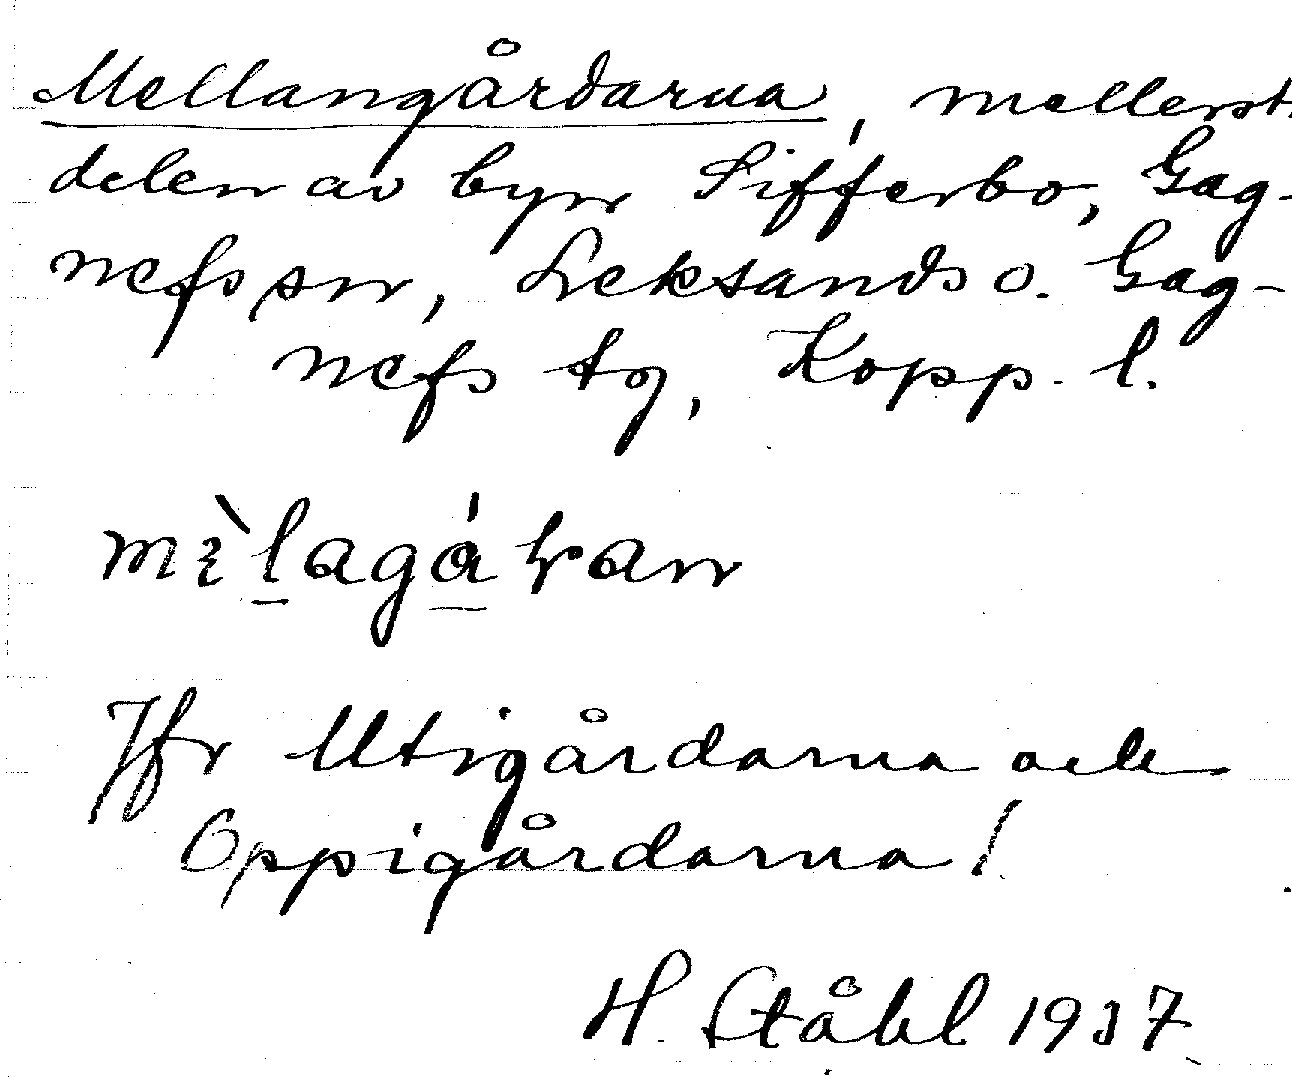 Mellangårdarna, mellerst
delen av byn Sifferbo, Gag-
nefs sn, Leksands o. Gag-
nefs tg, Kopp. l.
Jfr Utigårdarna och
Oppigårdarna!
H. Ståhl 1937